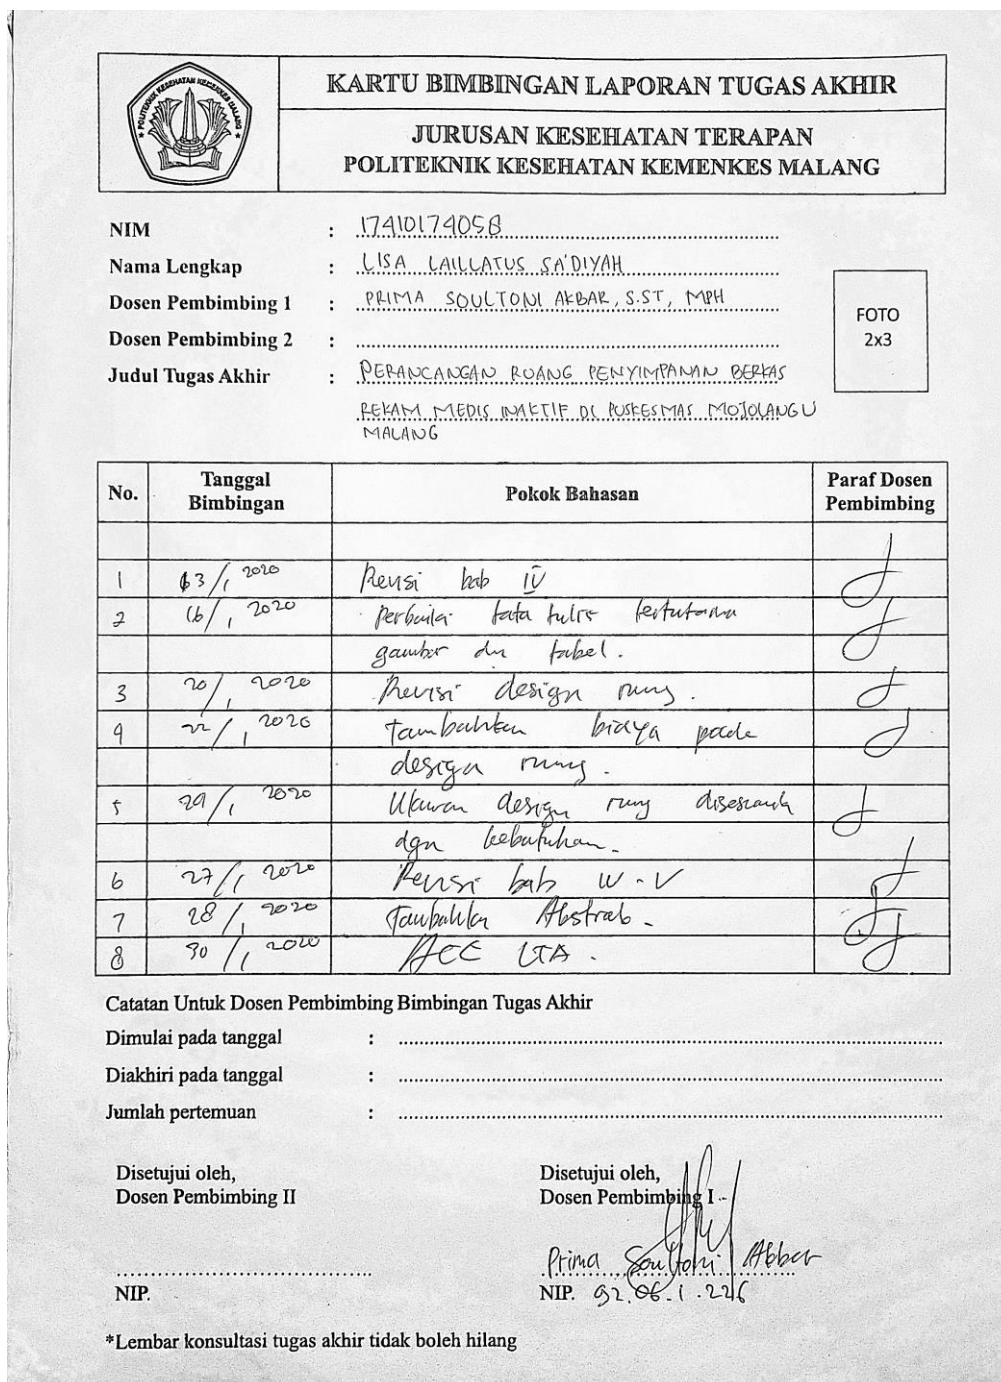 POLITEKNIK KESEHATAN KEMENKES MALANG
KARTU BIMBINGAN LAPORAN TUGAS AKHIR
JURUSAN KESEHATAN TERAPAN
POLITEKNIK KESEHATAN KEMENKES MALANG
NIM : 17410174058
Nama Lengkap : LISA LAILLATUS SA'DIYAH
Dosen Pembimbing 1 : PRIMA SOULTONI AKBAR, S.ST, MPH
Dosen Pembimbing 2 :
FOTO
2x3
Judul Tugas Akhir : PERANCANGAN RUANG PENYIMPANAN BERKAS
REKAM MEDIS INAKTIF DI PUSKESMAS MOJOLANGU
MALANG
No. Tanggal Bimbingan Pokok Bahasan Paraf Dosen Pembimbing
1 13/1 2020 Revisi bab IV
2 16/1 2020 Perbaiki tata tulis terutama
gambar dn tabel.
3 20/1 2020 Revisi design ruang.
4 22/1 2020 Tambahkan biaya pada
design ruang.
5 /1 2020 design ruang
dgn kebutuhan.
6 27/1 2020 Revisi bab IV - V
7 28/1 2020 Tambahkan Abstrak.
8 30/1 2020 ACC LTA.
Catatan Untuk Dosen Pembimbing Bimbingan Tugas Akhir
Dimulai pada tanggal :
Diakhiri pada tanggal :
Jumlah pertemuan :
Disetujui oleh, Disetujui oleh,
Dosen Pembimbing II Dosen Pembimbing I
Prima Soultoni Akbar
NIP. NIP. 92.06.1.226
*Lembar konsultasi tugas akhir tidak boleh hilang